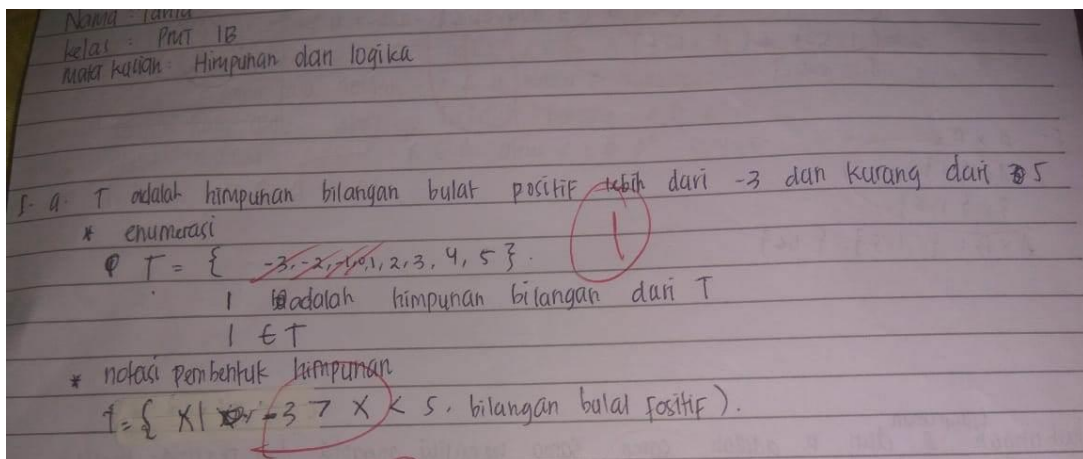 Nama : Tania
kelas : PMT 1B
Mata kuliah : Himpunan dan logika
1. a. T adalah himpunan bilangan bulat positif lebih dari -3 dan kurang dari 5
* enumerasi
T = { -3, -2, -1, 0, 1, 2, 3, 4, 5 }.
1
1 adalah himpunan bilangan dari T
1 ∈ T
* notasi pembentuk himpunan
T = { x | -3 > x < 5, bilangan bulat fositif ).